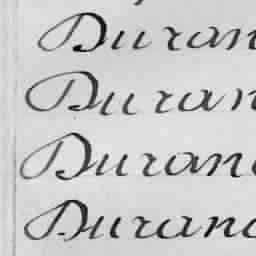 Duran
Duran
Duran
Duranc